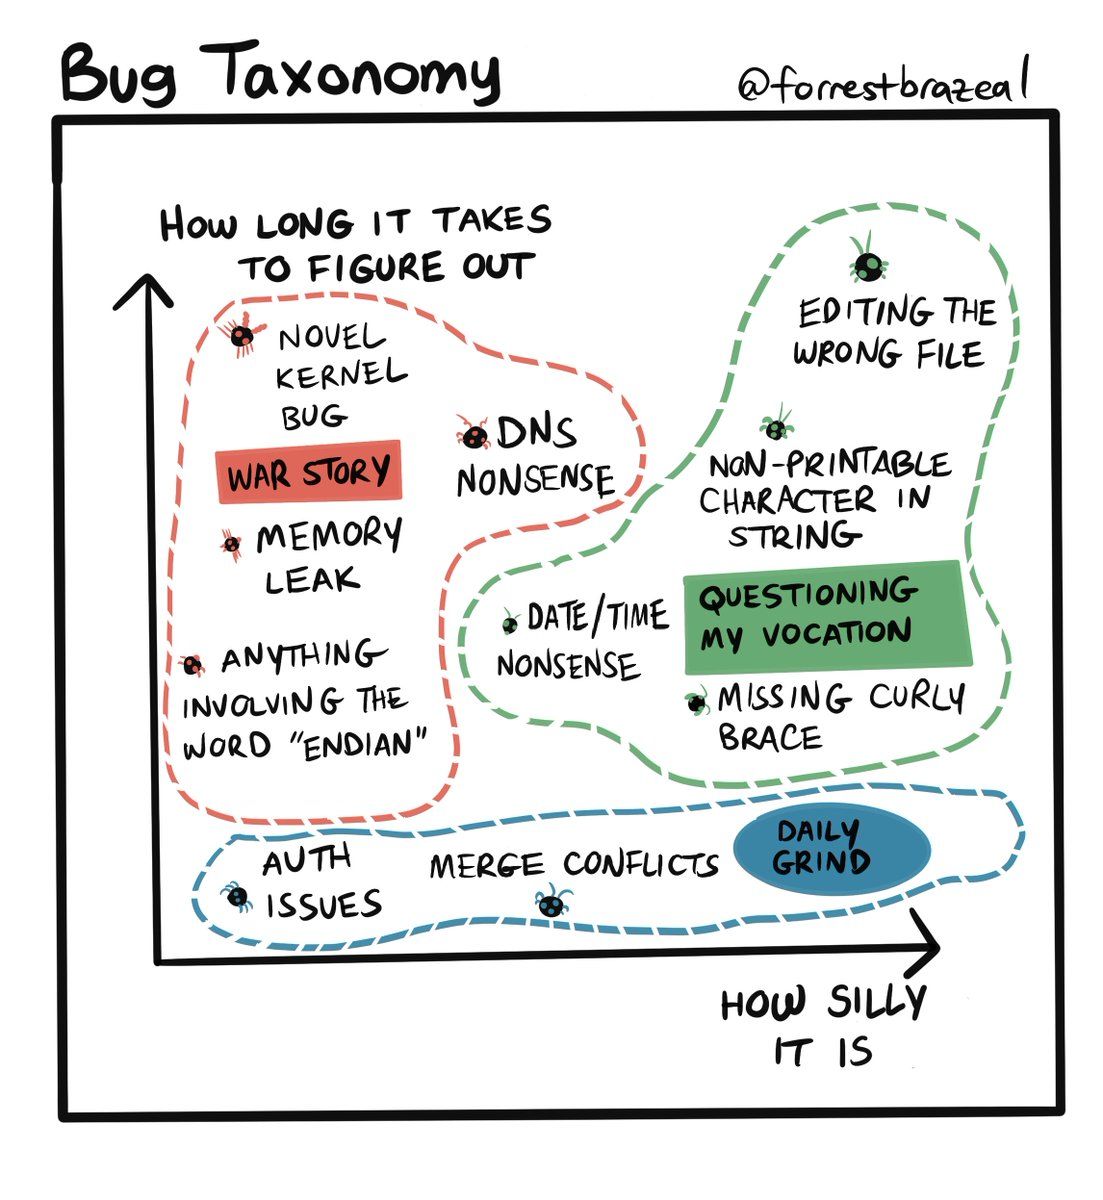 Bug Taxonomy
@forrestbrazeal
HOW LONG IT TAKES
TO FIGURE OUT
NOVEL
KERNEL
BUG
WAR STORY
MEMORY
LEAK
ANYTHING
INVOLVING THE
WORD "ENDIAN"
DNS
NONSENSE
EDITING THE
WRONG FILE
NON-PRINTABLE
CHARACTER IN
STRING
DATE/TIME
NONSENSE
QUESTIONING
MY VOCATION
MISSING CURLY
BRACE
AUTH
ISSUES
MERGE CONFLICTS
DAILY
GRIND
HOW SILLY
IT IS